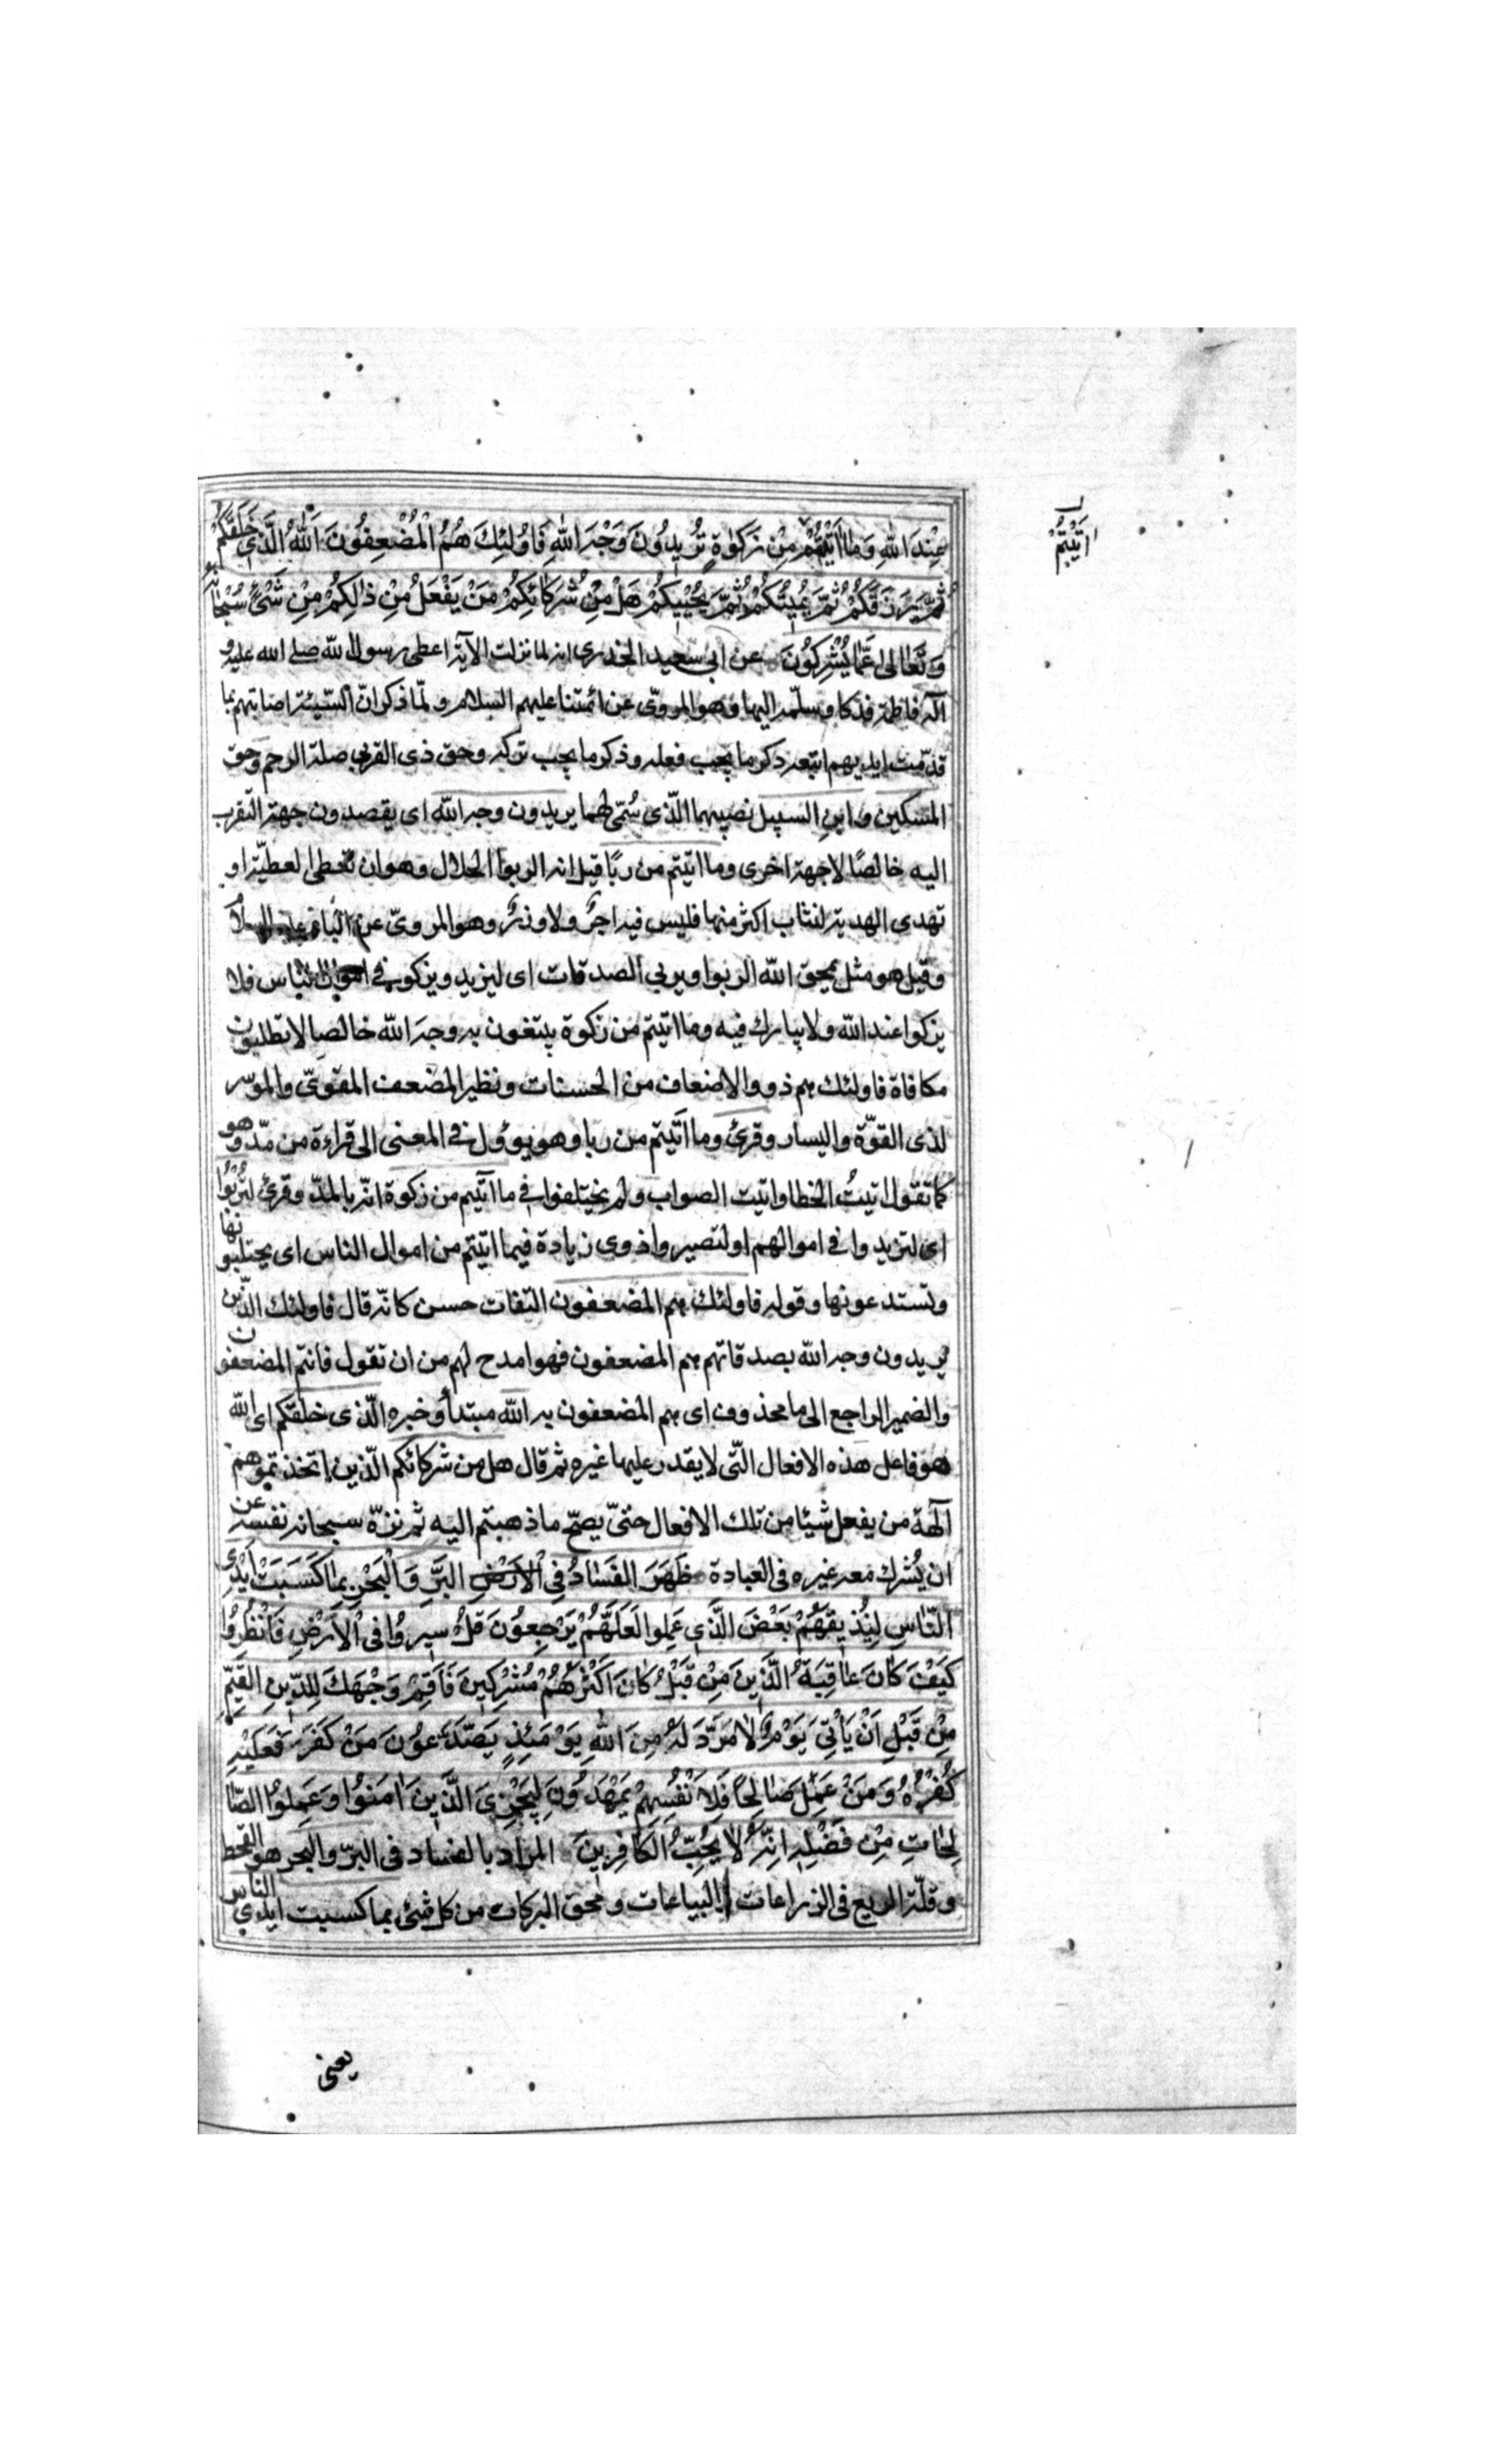 عِنْدَ اللهِ وَمَا اٰتَيْتُمْ مِنْ زَكوٰةٍ تُرِيدُونَ وَجْهَ اللهِ فَاُولٰئِكَ هُمُ الْمُضْعِفُونَ اَللهُ الَّذِي خَلَقَكُمْ
اٰتَيْتُمْ
ثُمَّ رَزَقَكُمْ ثُمَّ يُمِيتُكُمْ ثُمَّ يُحْيِيكُمْ هَلْ مِنْ شُرَكَائِكُمْ مَنْ يَفْعَلُ مِنْ ذٰلِكُمْ مِنْ شَيْءٍ سُبْحَانَهُ
وَتَعَالىٰ عَمَّا يُشْرِكُونَ عن ابي سعيد الخدرى انه لما نزلت الآية اعطى رسول الله صلى الله عليه و
آله فاطمة فدكا وسلّمه اليها وهو المروىّ عن ائمتنا عليهم السلام ولمّا ذكر انّ السّيئة اصابتهم بما
قدّمت ايديهم اتبعه ذكر ما يجب فعله وذكر ما يجب تركه وحق ذى القربى صلة الرحم وحق
المسكين وابن السبيل نصيبهما الّذى سُمّى لهما يريدون وجه الله اى يقصدون جهة التقرب
اليه خالصًا لا جهة اخرى وما اتيتم من ربًا قيل انه الربوا الحلال وهو ان تعطى العطيّة او
تهدى الهدية لتثاب اكثر منها فليس فيه اجرٌ ولا وزرٌ وهو المروىّ عن الباقر عليه السلام
وقيل هو مثل يمحق الله الربوا ويربي الصدقات اى ليزيد ويزكو في اموال الناس فلا
يزكوا عند الله ولا يبارك فيه وما اتيتم من زكوة يبتغون به وجه الله خالصا لا تطلبون
مكافاة فاولئك هم ذوو الاضعاف من الحسنات ونظير المضعف المقوىّ والموسر
لذى القوّة واليسار وقرئ وما اتيتم من ربا وهو يوؤل في المعنى الى قراءة من مدّ وهو
كما تقول اتيتُ الخطا واتيت الصواب ولم يختلفوا في ما آتيتم من زكوة انّه بالمدّ وقرئ لتُرْبُوا
اى لتزيدوا في اموالهم او لتصيروا ذوى زيادة فيما اتيتم من اموال الناس اى يجتلبونها
وتستدعونها وقوله فاولئك هم المضعفون التفات حسن كانّه قال فاولئك الذّين
يريدون وجه الله بصدقاتهم هم المضعفون فهو امدح لهم من ان تقول فانتم المضعفون
والضمير الراجع الى ما محذوف اى هم المضعفون به الله مبتدأ وخبره الّذى خلقكم اى الله
هو فاعل هذه الافعال الّتى لا يقدر عليها غيره ثم قال هل من شركائكم الّذين اتخذتموهم
آلهة من يفعل شيئا من تلك الافعال حتىّ يصحّ ما ذهبتم اليه ثم نزّه سبحانه نفسه عن
ان يُشرك معه غيره فى العبادة ظَهَرَ الفَسَادُ فِي الْاَرْضِ البَرِّ وَالْبَحْرِ بِمَا كَسَبَتْ اَيْدِى
النَّاسِ لِيُذِيقَهُمْ بَعْضَ الَّذِي عَمِلوا لَعَلَّهُمْ يَرْجِعُونَ قُلْ سِيرُوا فى الْاَرْضِ فَانْظُرُوا
كَيْفَ كَانَ عَاقِبَةُ الَّذِينَ مِنْ قَبْلُ كَانَ اَكْثَرُهُمْ مُشْرِكِينَ فَاَقِمْ وَجْهَكَ لِلدِّينِ القَيِّمِ
مِنْ قَبْلِ اَنْ يَأْتِيَ يَوْمٌ لَا مَرَدَّ لَهُ مِنَ اللهِ يَوْمَئِذٍ يَصَّدَّعُونَ مَنْ كَفَرَ فَعَلَيْهِ
كُفْرُهُ وَمَنْ عَمِلَ صَالِحًا فَلِاَنْفُسِهِمْ يَمْهَدُونَ لِيَجْزِىَ الَّذِينَ اٰمَنُوا وَعَمِلُوا الصَّا
لِحَاتِ مِنْ فَضْلِهِ اِنَّهُ لَا يُحِبُّ الْكَافِرِينَ المراد بالفساد فى البرّ والبحر هو القحط
وقلّة الريع فى الزراعات والبياعات ومحق البركات من كل شئ بما كسبت ايدي الناس
يعنى